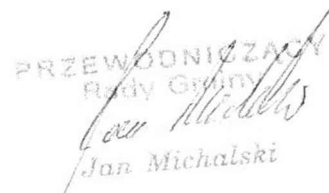 PRZEWODNICZĄCY
Rady Gminy
Jan Michalski